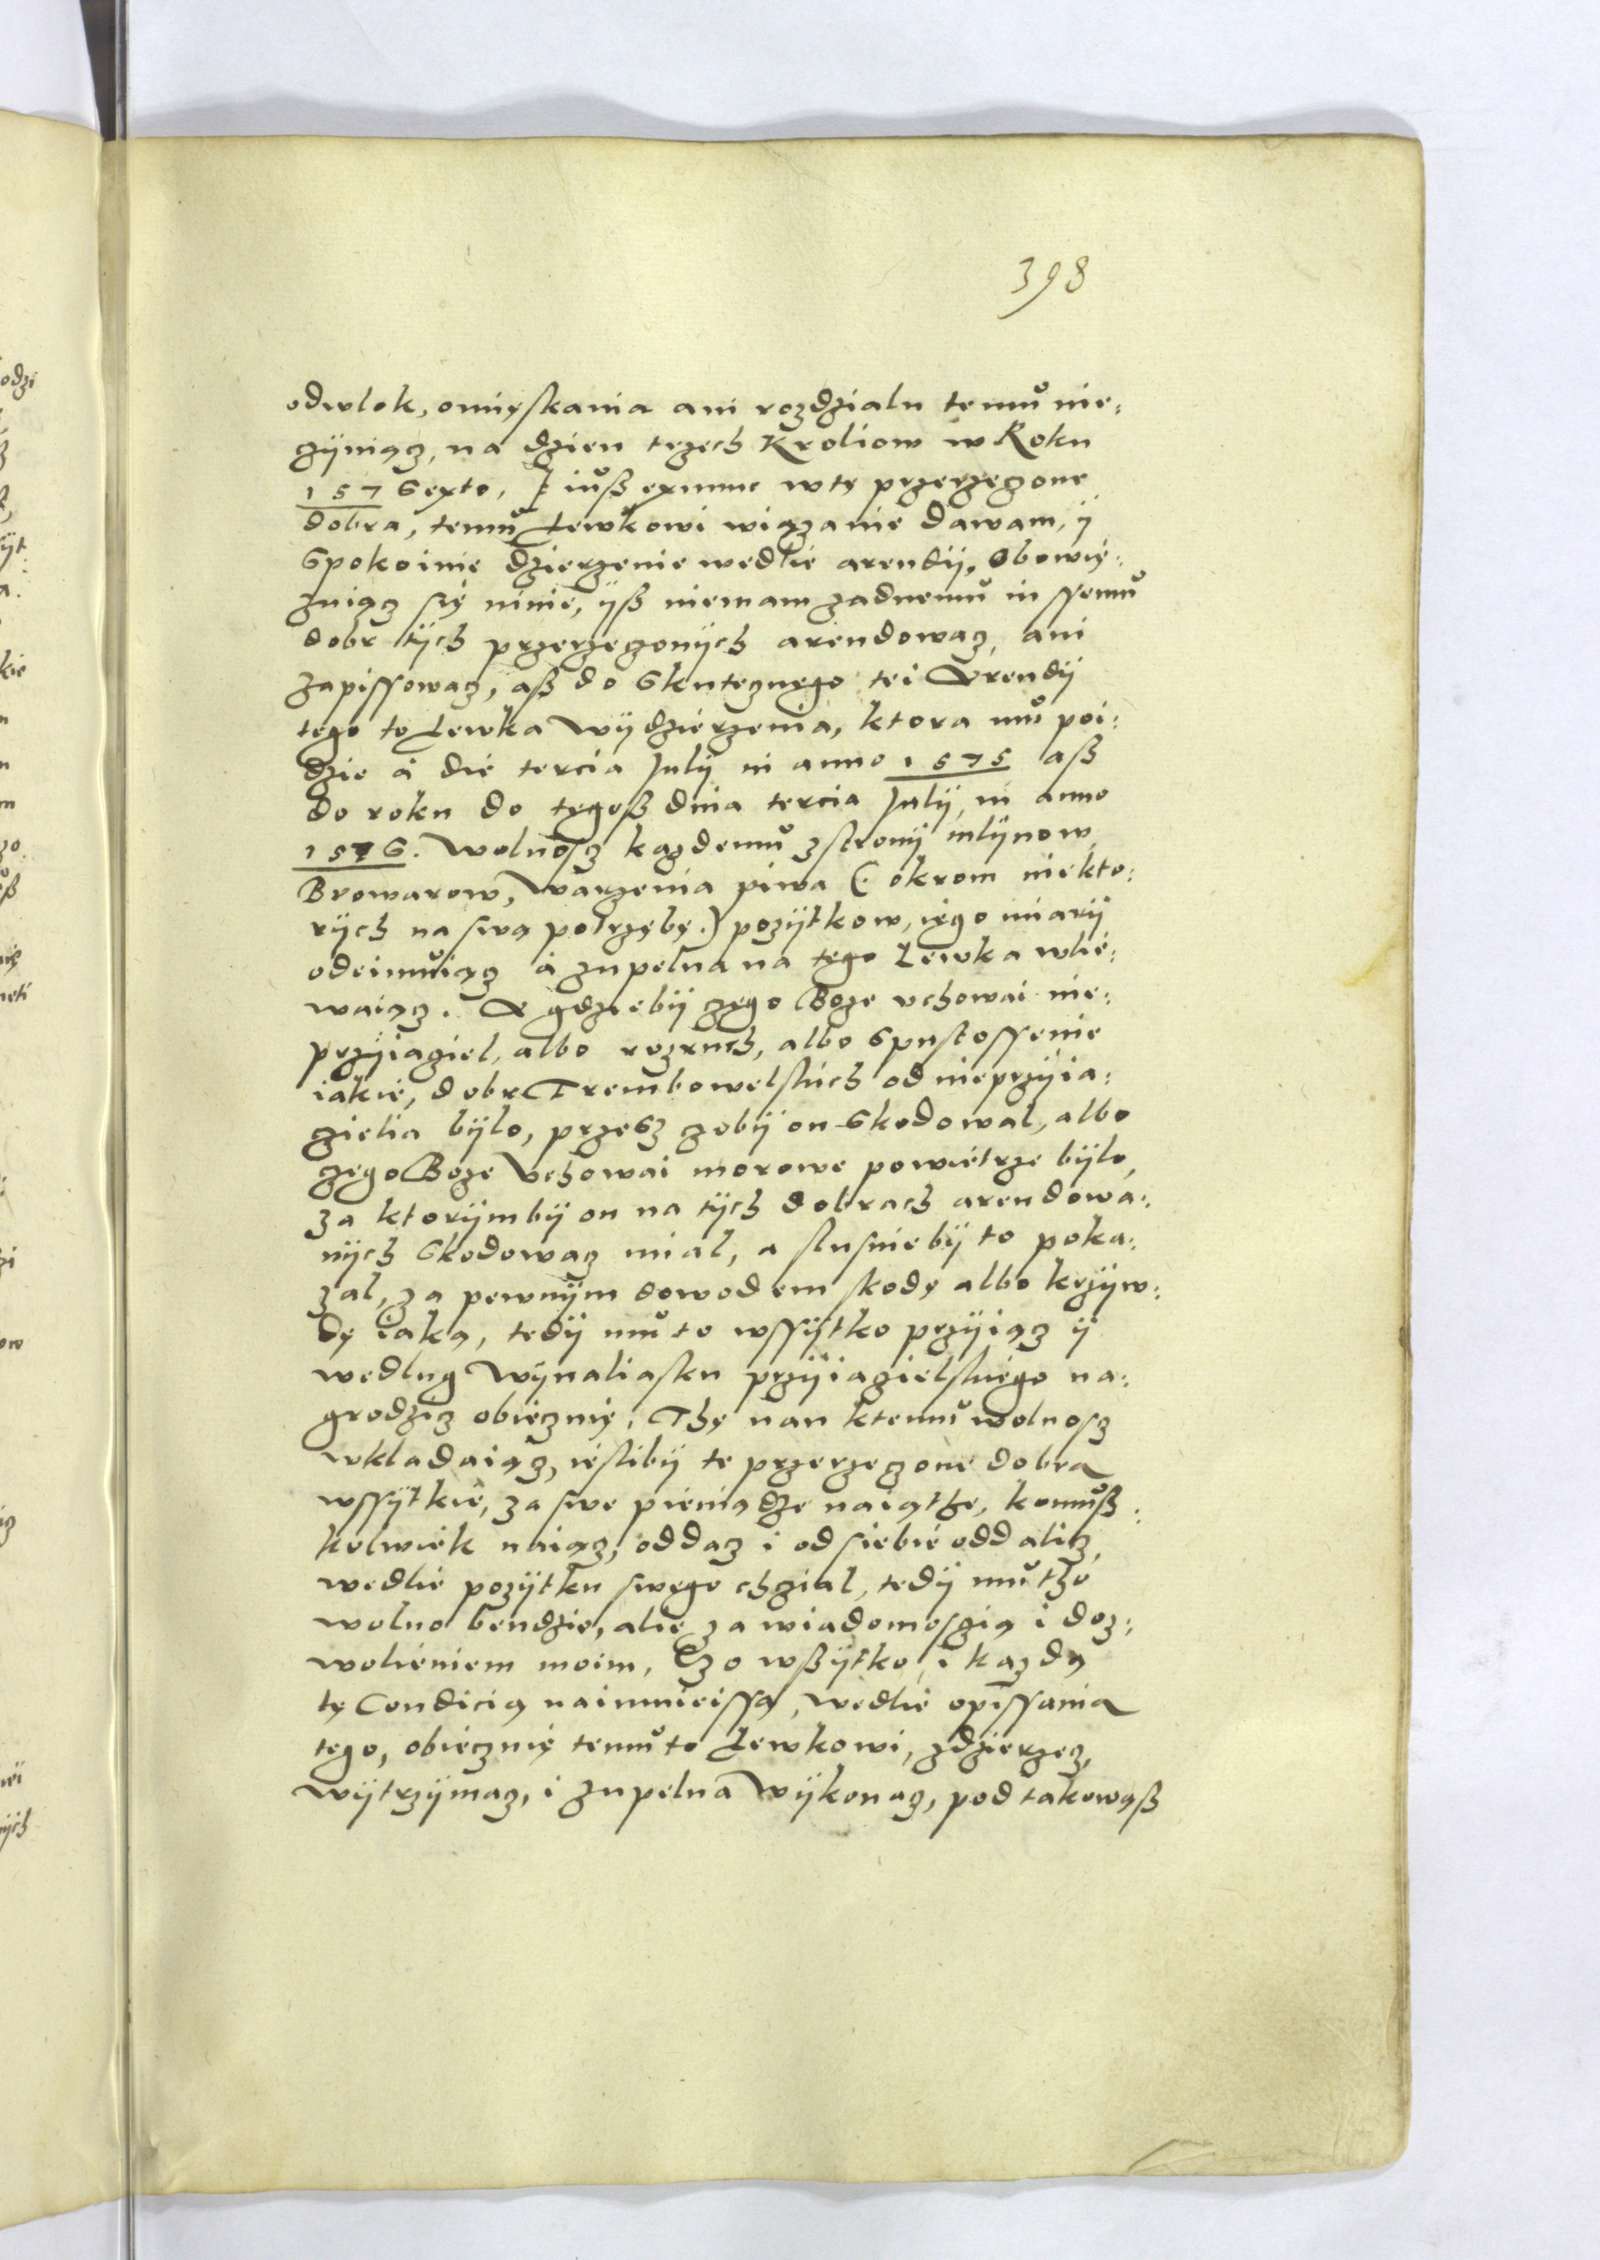 398
odwlok, omięskania ani rozdzialu temu nie:
czÿniącz, na dzien trzech Kroliow w Roku
1576exto, I iuß exnunc w tę przerzeczone
dobra, temu Lewkowi wiązanie dawam, ÿ
Spokoinie dzierzenie wedlie arendÿ, Obowię:
zuiącz się ninie, ÿß niemam zadnemu inssemu
dobr tÿch przerzeczonÿch arendowacz, ani
zapissowacz, aß do Skutecznego tei Arendÿ
tego to Lewka wÿdzierzenia, ktora mu poi:
dzie á die tercia Julÿ in anno 1575 aß
do roku do tegoß dnia tercia Julÿ, in anno
1576. Wolnoscz kazdemu z stronÿ mlÿnow,
Browarow, Warzenia piwa (: okrom niekto:
rÿch na swą potrzębę :) pozÿtkow, iego miarÿ
odeimuiącz á zupelna na tego Lewka wlie:
waiącz. A gdziebÿ czego Boze vchowai nie:
przÿiaciel, albo rozruch, albo Spustossenie
iakie, dobr Trembowelskich od nieprzÿia:
cielia bÿlo, przesz czobÿ on Skodowal, albo
czego Boze Vchowai morowe powietrze bÿlo,
za ktorÿmbÿ on na tÿch dobrach arendowa:
nÿch Skodowacz mial, a slusniebÿ to poka:
zal, za pewnÿm dowodem skodę albo krzÿw:
dę iaką, tedÿ mu to wssÿstko przÿiącz ÿ
wedlug Wÿnaliasku przÿiacielskiego na:
grodzicz obiecznię. Thę nan ktemu wolnoscz
wkladaiącz, iestlibÿ te przerzeczone dobra
wssÿtkie, za swe pieniądze naiąthe, komuß
kolwiek naiącz, oddacz i od siebie oddalicz,
wedlie pozÿtku swego chcial, tedÿ mu tho
wolno bendzie, alie za wiadomoscią i doz:
wolieniem moim, Czo wßÿtko, i kazdą
tę Condicią naimnieissą, wedlie opissania
tego, obiecznię temu to Lewkowi, zdzierzecz,
wÿtrzÿmacz, i zupelna Wÿkonacz, pod takowąß